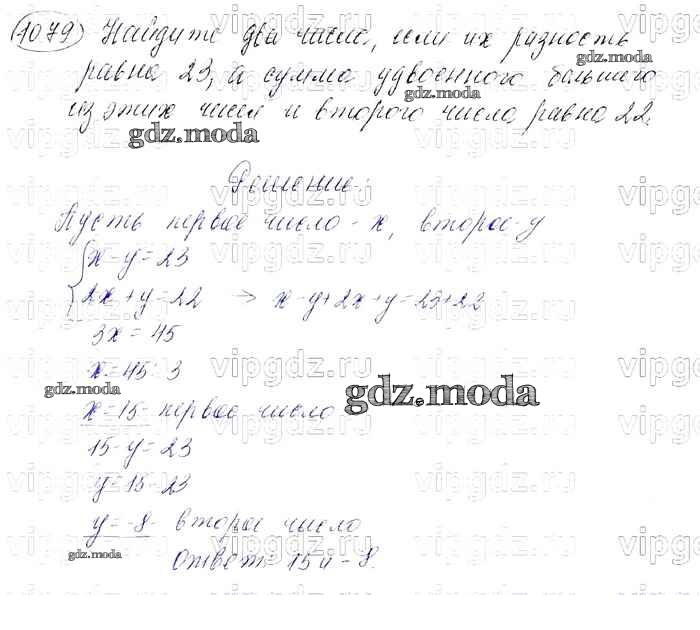 1079) Найдите два числа, если их разность
равна 23, а сумма удвоенного большего
из этих чисел и второго числа равна 22.
gdz.moda
gdz.moda
Решение:
Пусть первое число - x, второе - y
x - y = 23
2x + y = 22 → x - y + 2x + y = 23 + 22
3x = 45
x = 45 : 3
gdz.moda
gdz.moda
x = 15 - первое число
15 - y = 23
y = 15 - 23
y = -8 - второе число
gdz.moda
Ответ: 15 и -8.
vipgdz.ru